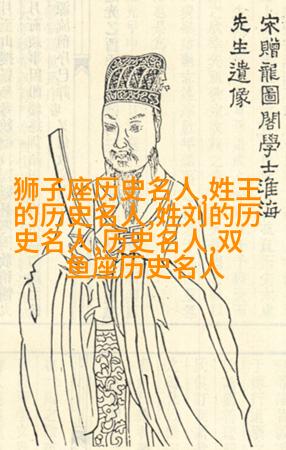 宋贈龍圖閣學士淮海
先生遺像
狮子座历史名人,姓王
的历史名人,姓刘的历
史名人,历史名人,双
鱼座历史名人